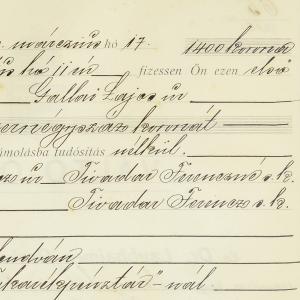 márczius hó 17. 1400 korona
hó ji én fizessen Ön ezen első
Gallai Lajos úr
ernégyszáz koronát
ámolásba tudósítás nélkül.
úr Tivadar Ferenczné s.k.
Tivadar Ferencz s.k.
lendván
takarékpénztár"-nál